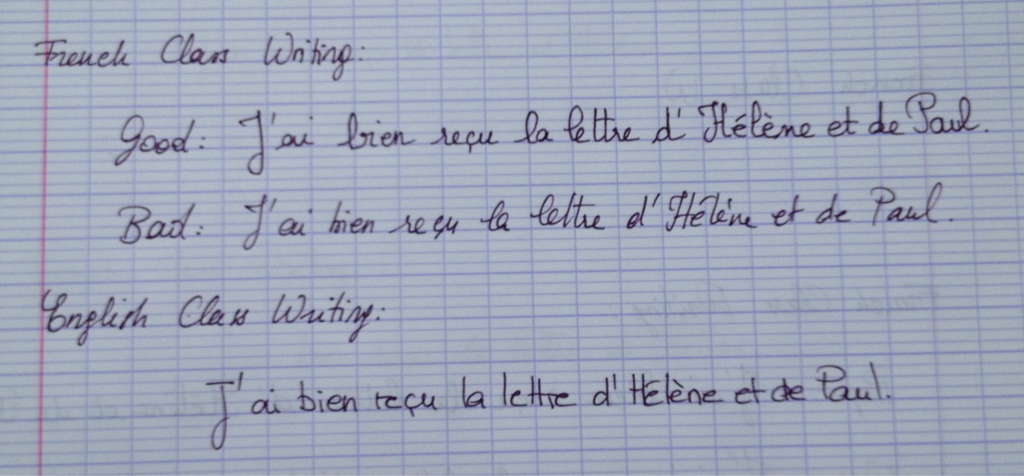 French Class Writing:
Good: J'ai bien reçu la lettre d'Hélène et de Paul.
Bad: J'ai bien reçu la lettre d'Hélène et de Paul.
English Class Writing:
J'ai bien reçu la lettre d'Hélène et de Paul.